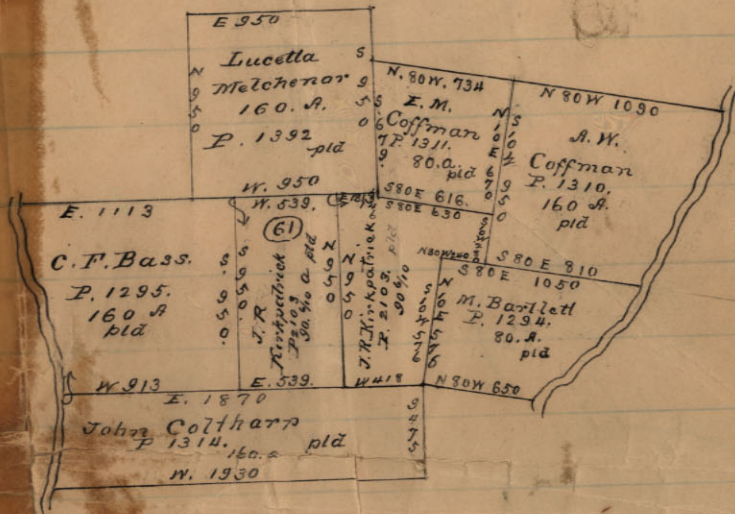 E 950
Lucetta
Melchenor
160. A.
P. 1392
pld
N 950
S 950
W. 950
N. 80W. 734
E. M.
Coffman
P. 1311.
80. a.
pld
S 679
S80E 616.
N 80W 1090
A. W.
Coffman
P. 1310.
160 A.
pld
S 80 E 810
E. 1113
C. F. Bass.
P. 1295.
160 A
pld
S. 950.
W 913
W. 539.
61
J. R
Kirkpatrick
P 2103
a pld
N 950
E. 539.
S80E 630
J. R. Kirkpatrick
P. 2103.
90 6/10
pld
N 950
W 418
S 80E
1050
M. Bartlett
P. 1294.
80. A.
pld
N 80W 650
E. 1870
John Coltharp
P 1314.
pld
160. a
S 475
W. 1930